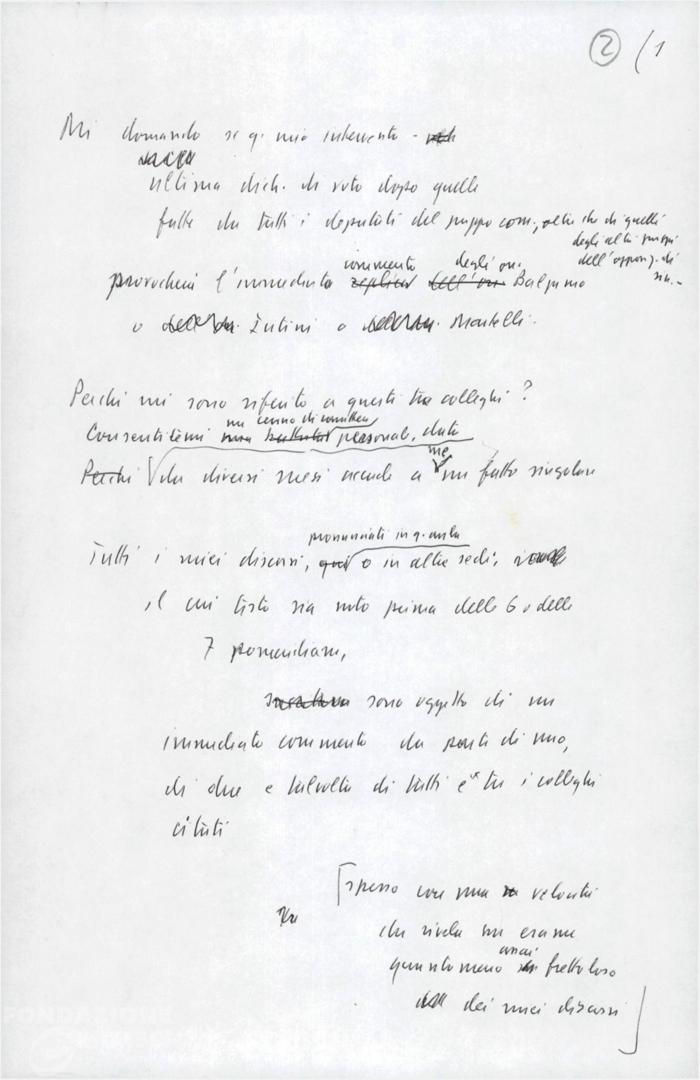 2 (1
Mi domando se q. mio intervento -
ultima dich. di voto dopo quelle
fatte da tutti i deputati del gruppo com., oltre che di quelli
degli altri gruppi
dell'oppos. di
sin. -
commento degli on.
provocherà l'immediato replica dell'on. Balzamo
o Zutini o Martelli.
Perché mi sono riferito a questi tre colleghi?
un cenno di
Consentitemi una personale, dato
me
Perché da diversi mesi accade a un fatto singolare
pronunciati in q. aula
Tutti i miei discorsi, qui o in altre sedi,
il cui testo sia noto prima delle 6 o delle
7 pomeridiane,
sono oggetto di un
immediato commento da parte di uno,
di due e talvolta di tutti e tre i colleghi
citati
[spesso con una velocità
che rivela un esame
assai
quanto meno frettoloso
dei miei discorsi]
FONDAZIONE